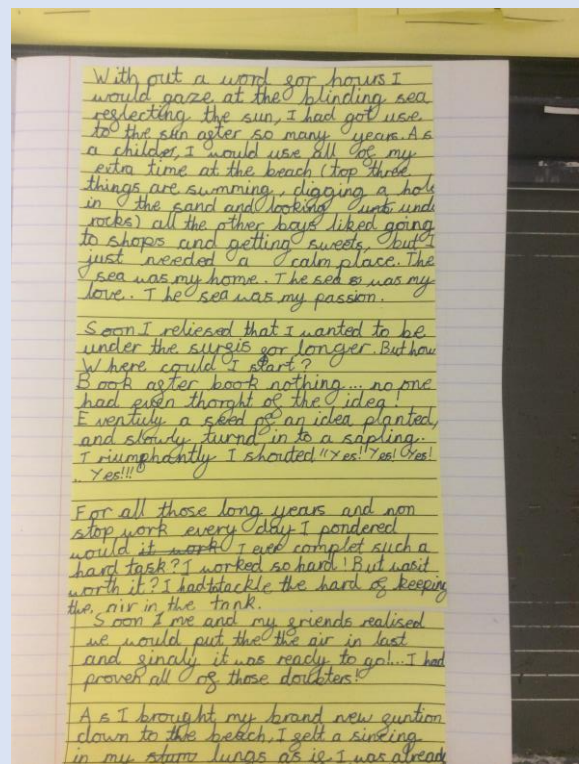 With out a word for hours I
would gaze at the blinding sea
reflecting the sun, I had got use
to the sun after so many years. As
a childer, I would use all of my
extra time at the beach (top three
things are summing, digging a hole
in the sand and looking unde
rocks) all the other boys liked going
to shops and getting sweets, but I
just needed a calm place. The
sea was my home. The sea was my
love. The sea was my passion.
Soon I reliesed that I wanted to be
under the surfis for longer. But how
Where could I start?
Book after book nothing... no one
had even thorght of the idea!
Eventuly a seed of an idea planted,
and slowly turnd in to a sapling.
Triumphantly I shouted "Yes!" Yes! Yes!
.. Yes!!!"
For all those long years and non
stop work every day I pondered
would it work I ever complet such a
hard task? I worked so hard! But was it
worth it? I had to tackle the hard of keeping
the, air in the tank.
Soon I me and my friends realised
we would put the the air in last
and finaly it was ready to go!... I had
proven all of those doubters!
As I brought my brand new
down to the beach, I felt a
in my lungs as if I was already